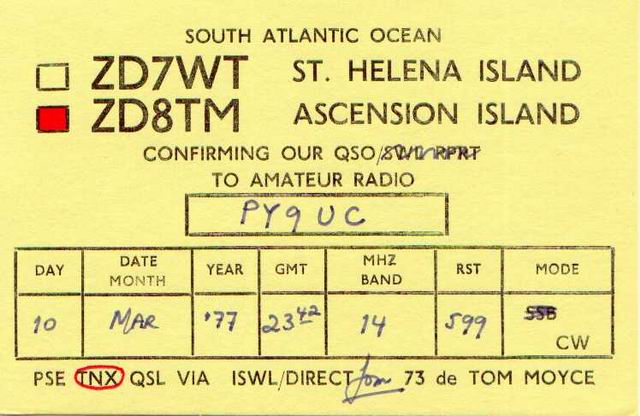 SOUTH ATLANTIC OCEAN
ZD7WT ST. HELENA ISLAND
ZD8TM ASCENSION ISLAND
CONFIRMING OUR QSO/SWL RPRT
TO AMATEUR RADIO
PY9UC
DAY DATE MONTH YEAR GMT MHZ BAND RST MODE
10 MAR '77 2342 14 599 SSB CW
PSE TNX QSL VIA ISWL/DIRECT Tom 73 de TOM MOYCE